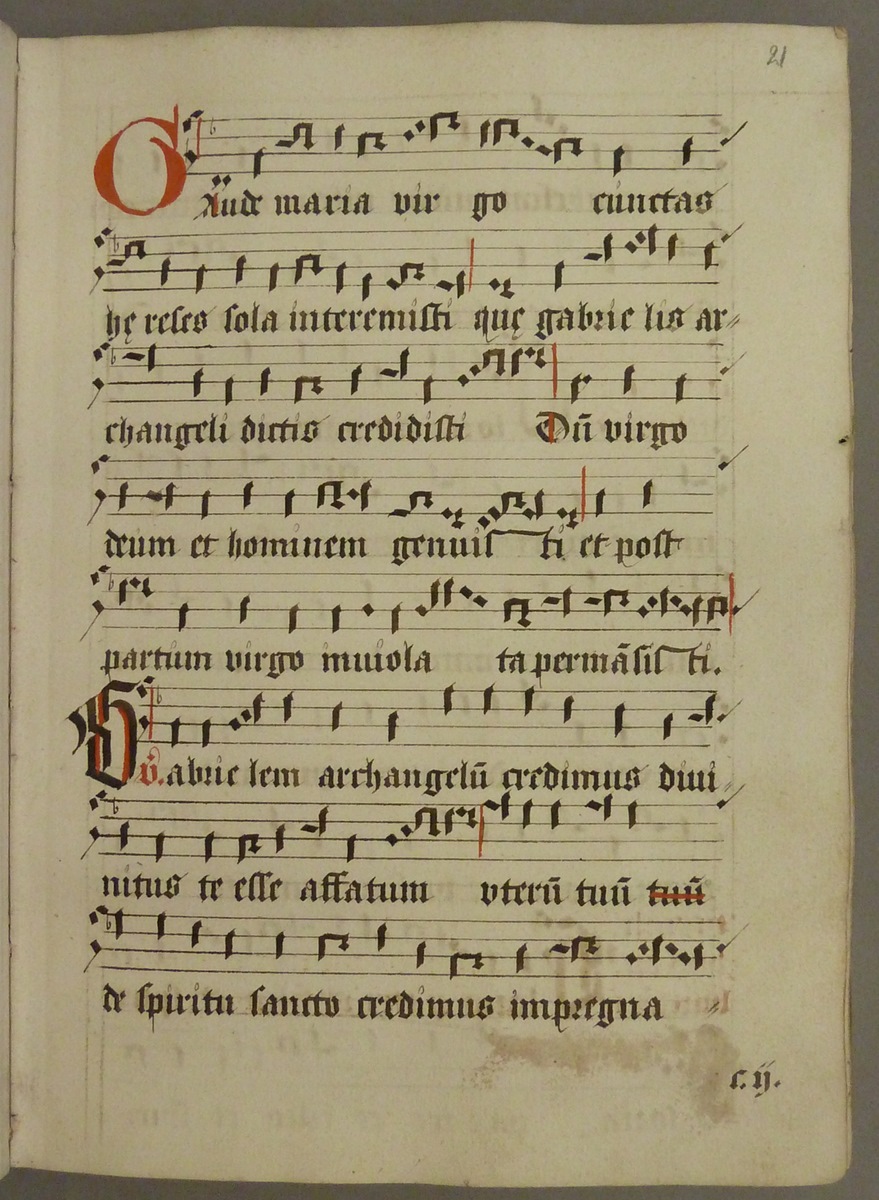 21
Gaude maria vir go cunctas
hę reses sola interemisti quę gabrie lis ar⸗
changeli dictis credidisti Dū virgo
deum et hominem genuis ti et post
partum virgo inuiola ta permāsis ti.
V̄. Gabrie lem archangelū credimus diui⸗
nitus te esse affatum vterū tuū tuū
de spiritu sancto credimus impregna⸗
c.ij.